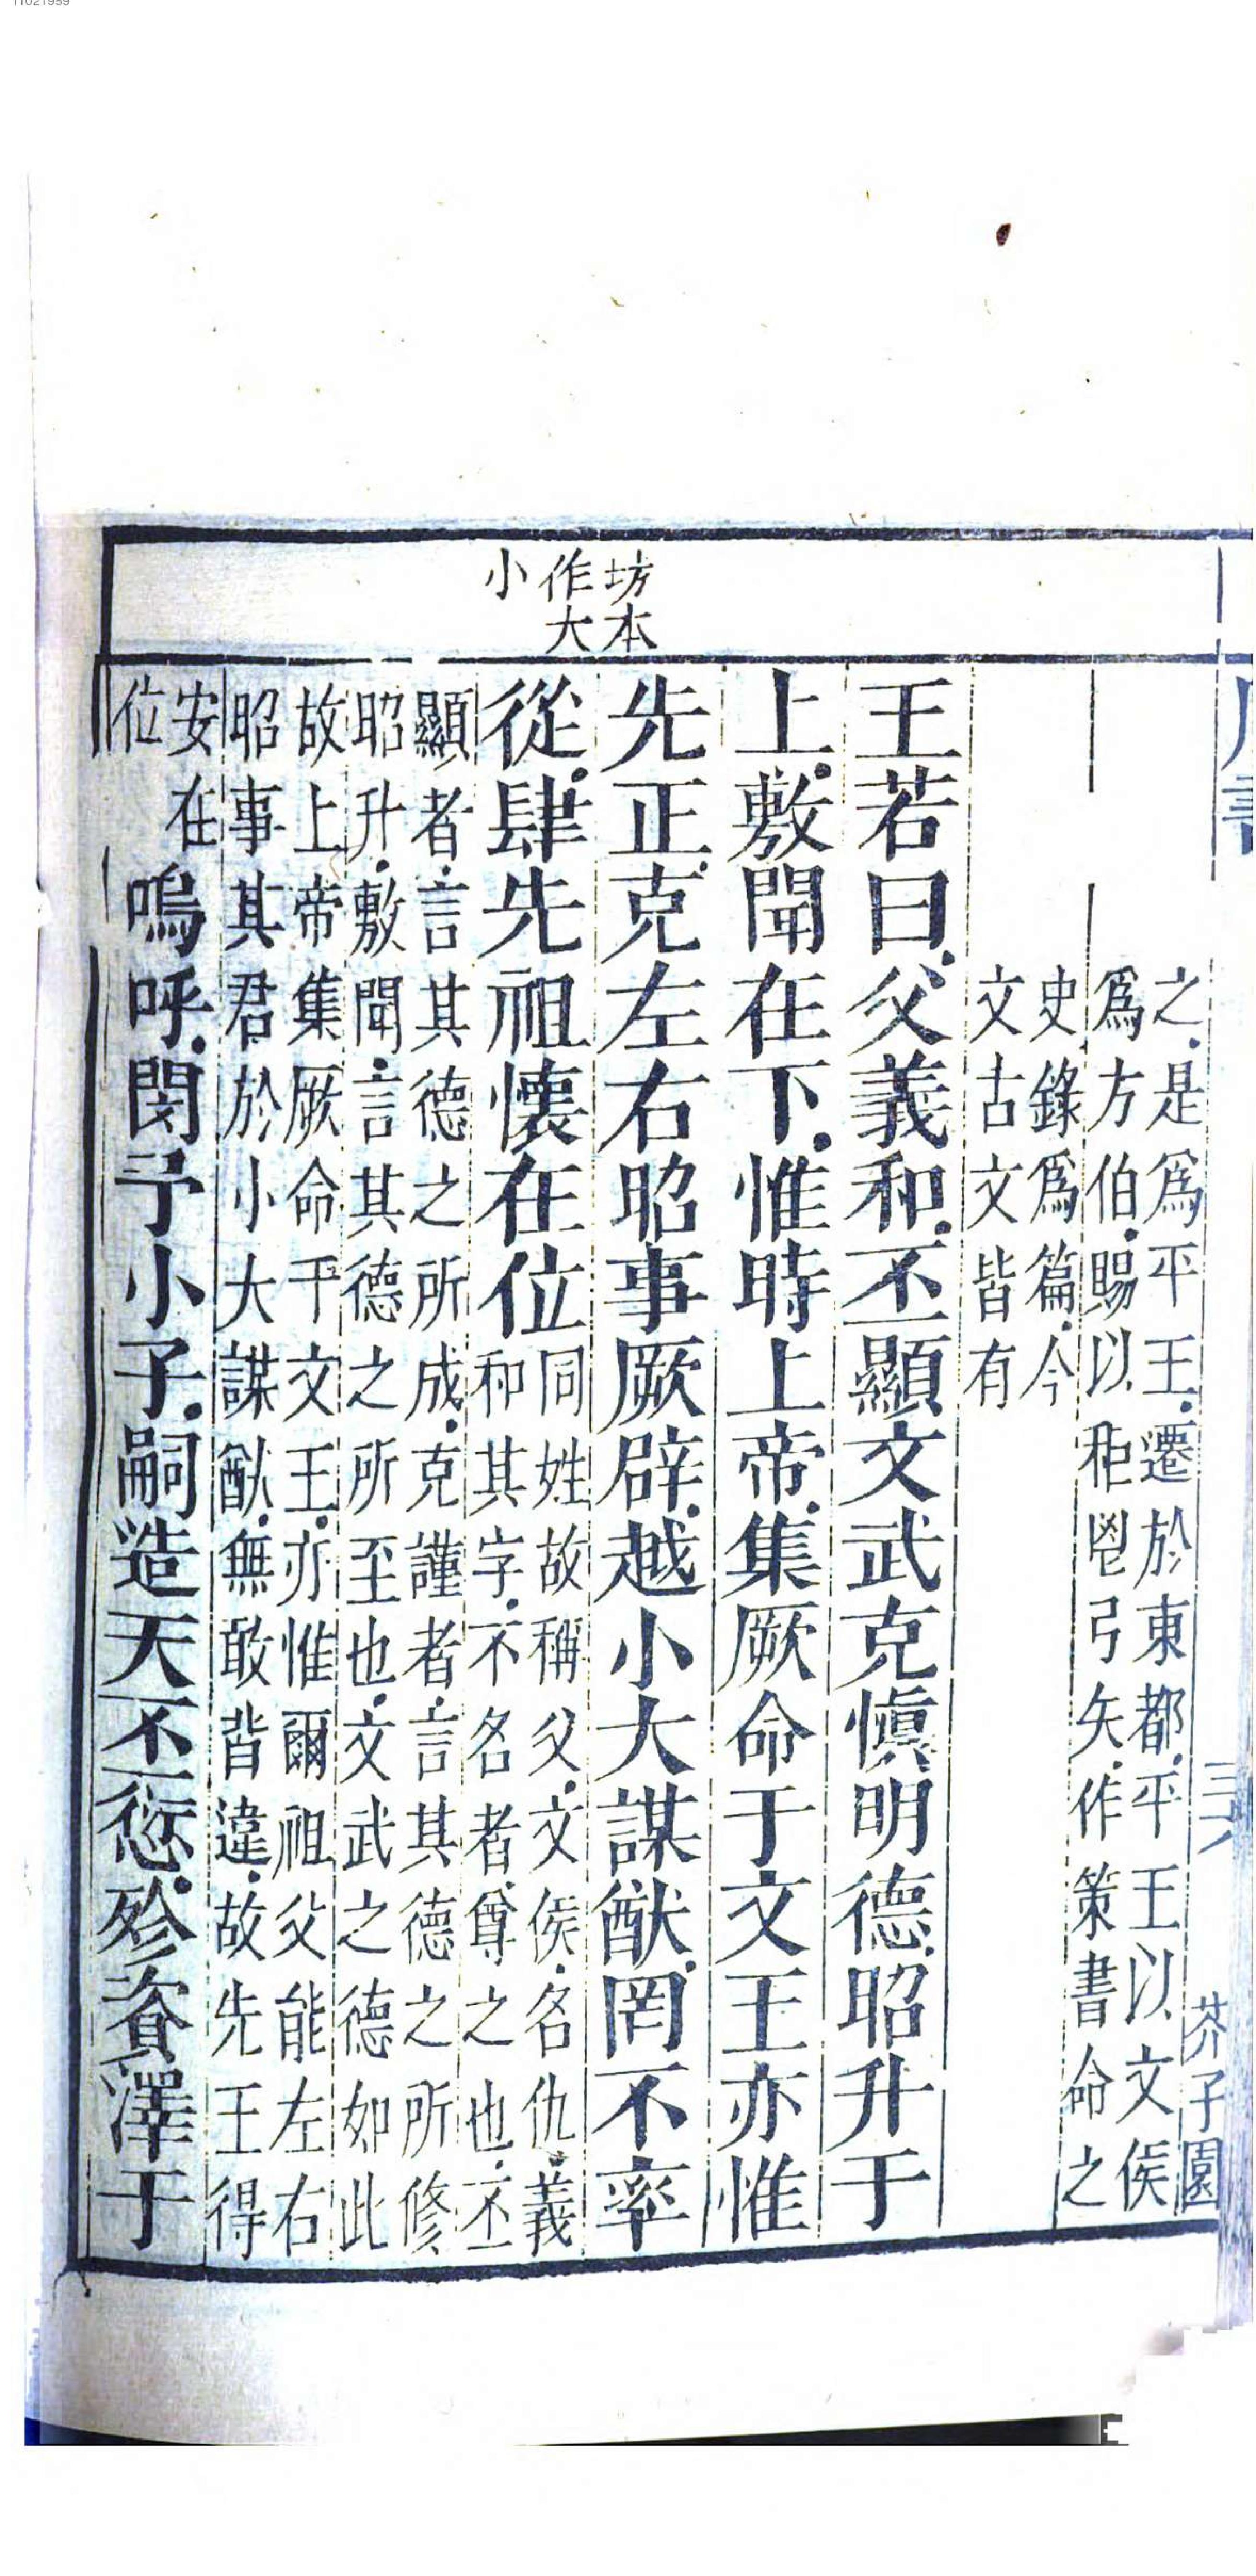 11021959
坊本
作大
小
芥子園
之是爲平王遷於東都平王以文侯
爲方伯賜以秬鬯弓矢作策書命之
史錄爲篇今
文古文皆有
王若曰父義和丕顯文武克愼明德昭升于
上敷聞在下惟時上帝集厥命于文王亦惟
先正克左右昭事厥辟越小大謀猷罔不率
從肆先祖懷在位
同姓故稱父文侯名仇義
和其字不名者尊之也丕
顯者言其德之所成克謹者言其德之所修
昭升敷聞言其德之所至也文武之德如此
故上帝集厥命于文王亦惟爾祖父能左右
昭事其君於小大謀猷無敢背違故先王得
安在
位
嗚呼閔予小子嗣造天丕愆殄資澤于